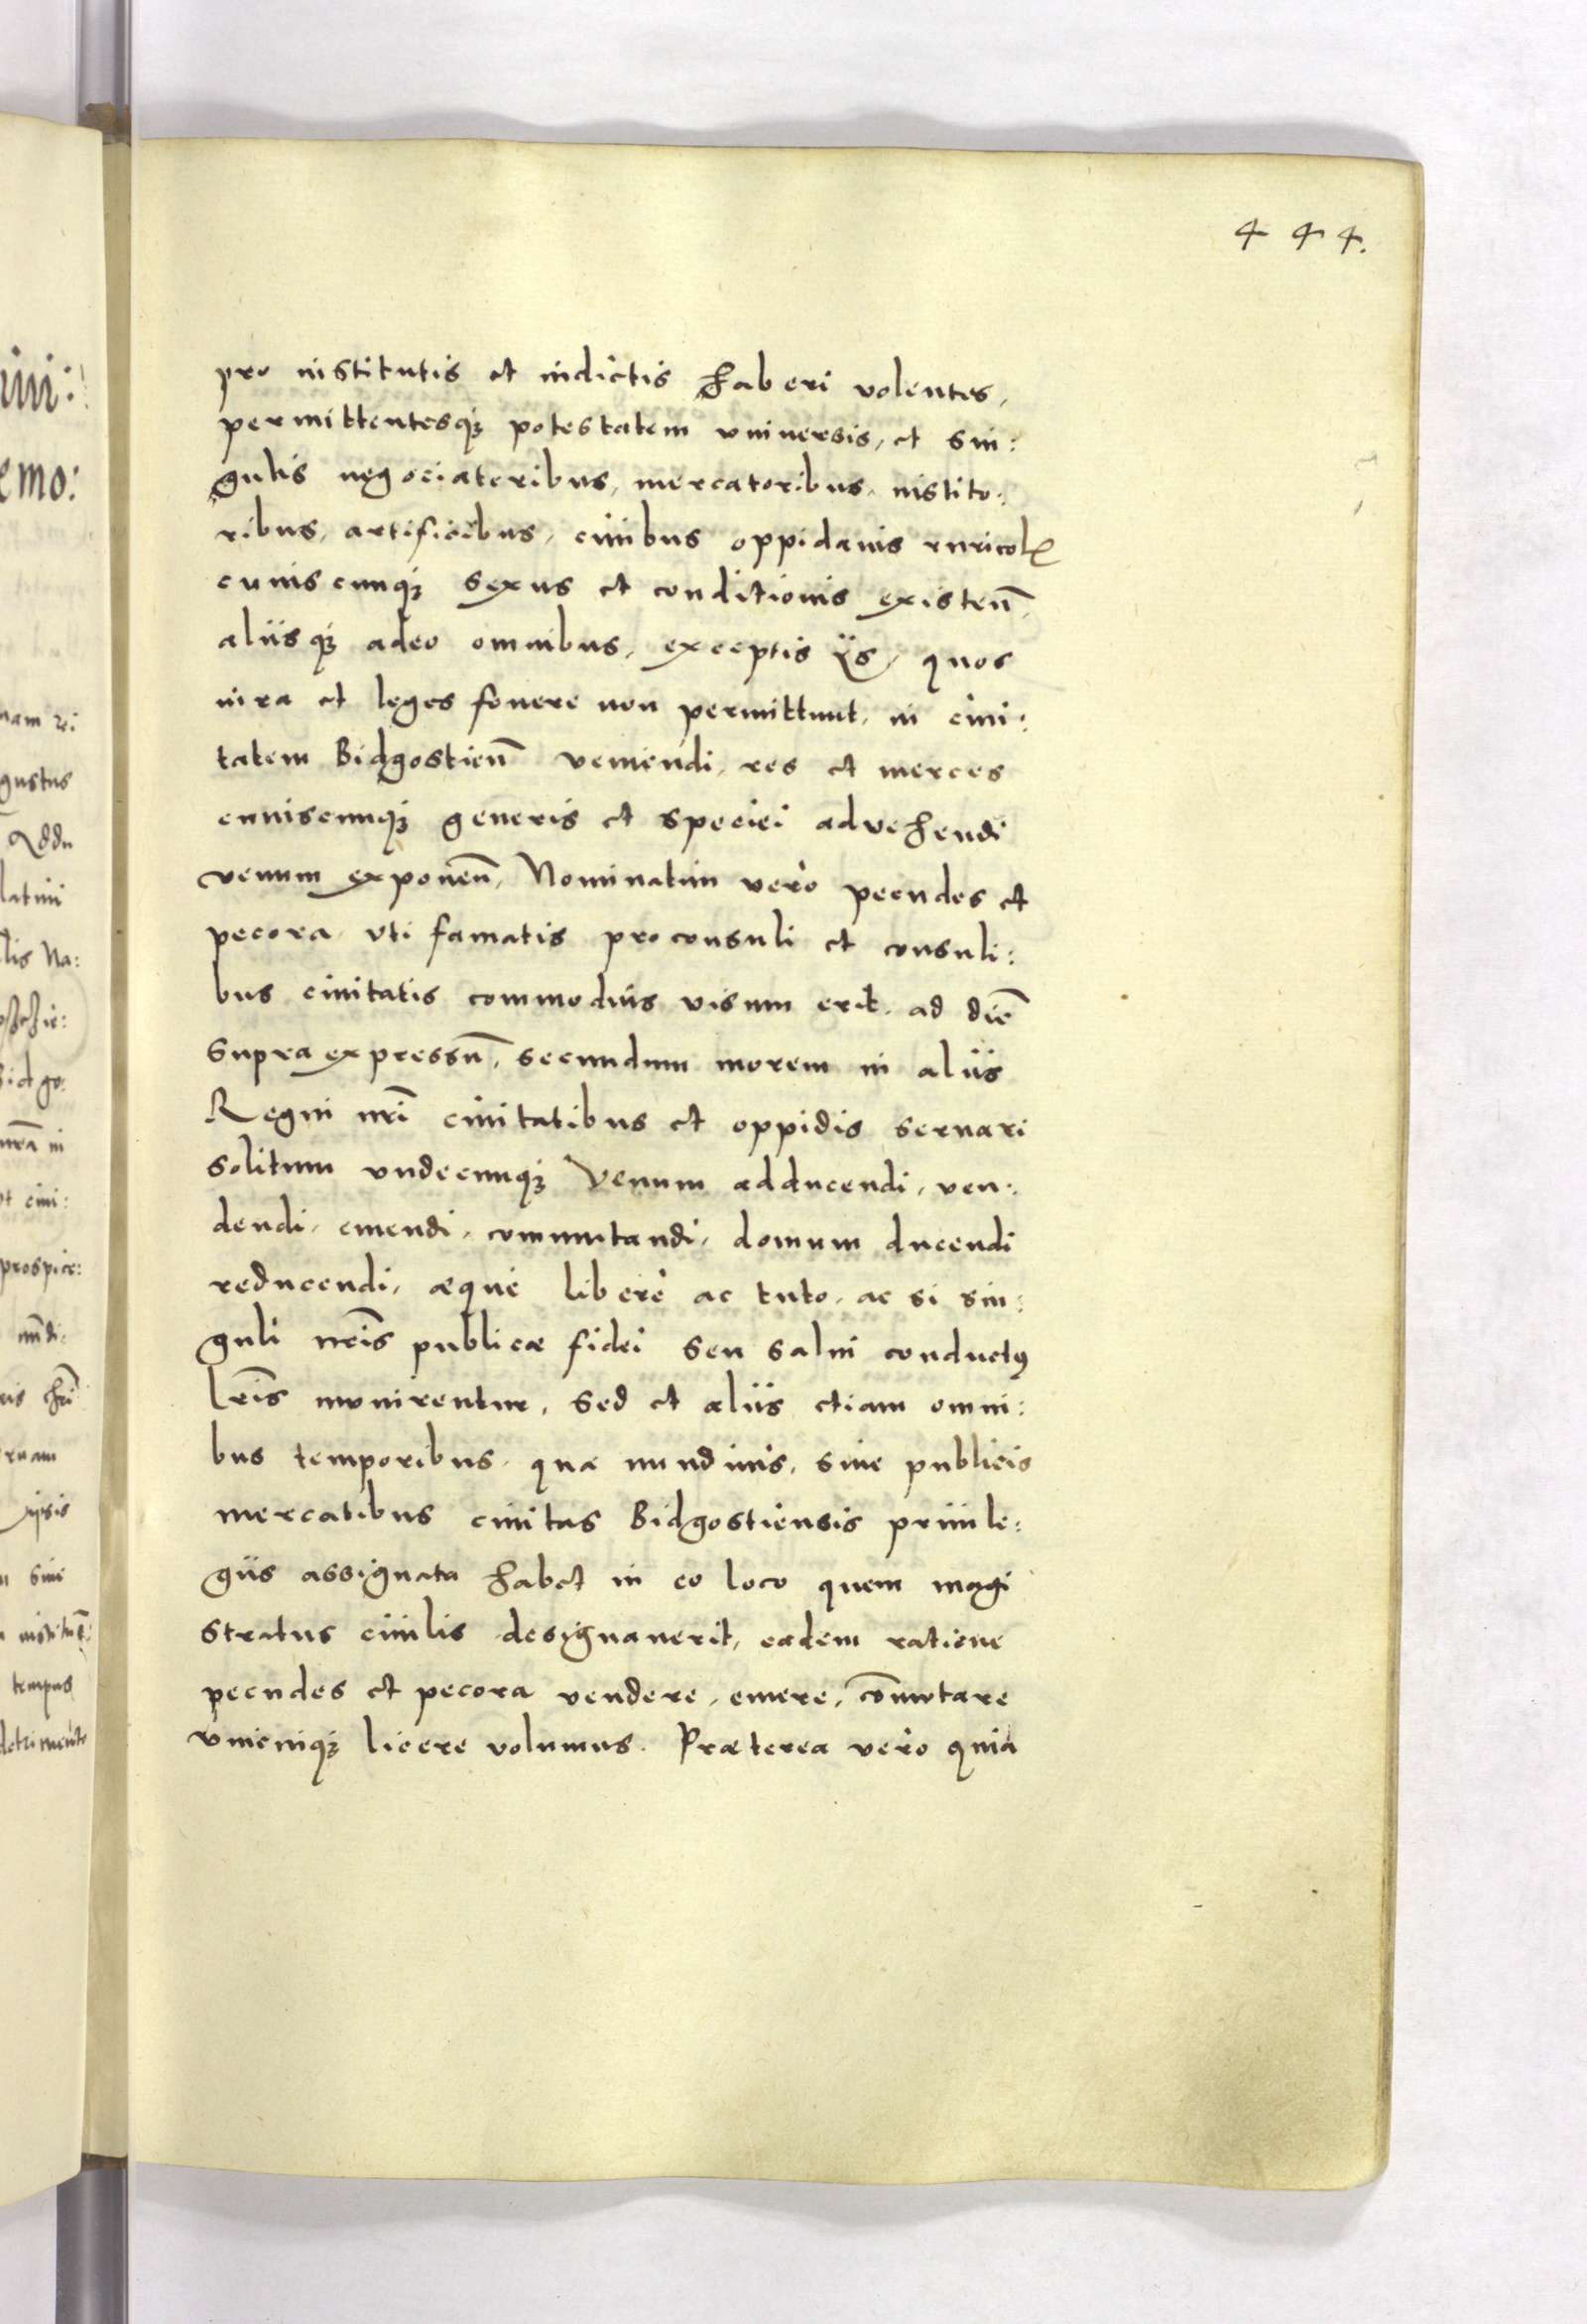 444.
pro institutis et indictis haberi volentes,
permittentesq₃ potestatem vniuersis, et sin:
gulis negociatoribus, mercatoribus, instito:
ribus, artificibus, ciuibus oppidanis ruricol
cuiuscunq₃ sexus et conditionis existeñ,
aliisq₃ adeo omnibus, exceptis ÿs, quos
iura et leges fouere non permittunt, in ciui:
tatem Bidgostieñ veniendi, res et merces
cuiuscunq₃ generis et speciei aduehendi
venum exponeñ, Nominatim vero pecudes et
pecora, vti famatis proconsuli et consuli:
bus ciuitatis commodius visum erit, ad diẽ
supra expressũ, secundum morem in aliis
Regni nr̃i ciuitatibus et oppidis seruari
solitum vndecunq₃ venum adducendi, ven:
dendi, emendi, commutandi, domum ducendi
reducendi, æque libere ac tuto, ac si sin:
guli nr̃is publicæ fidei seu salui conductꝰ
lr̃is munirentur, sed et aliis etiam omni:
bus temporibus, quæ nundinis, siue publicis
mercatibus ciuitas Bidgostiensis priuile:
giis assignata habet in eo loco quem magi
stratus ciuilis designauerit, eadem ratione
pecudes et pecora vendere, emere, com̃utare
vnicuiq₃ licere volumus. Præterea vero quia